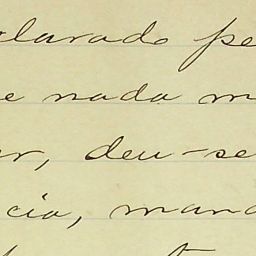 clarado pe
e nada m
ar, deu-se
cia, mand